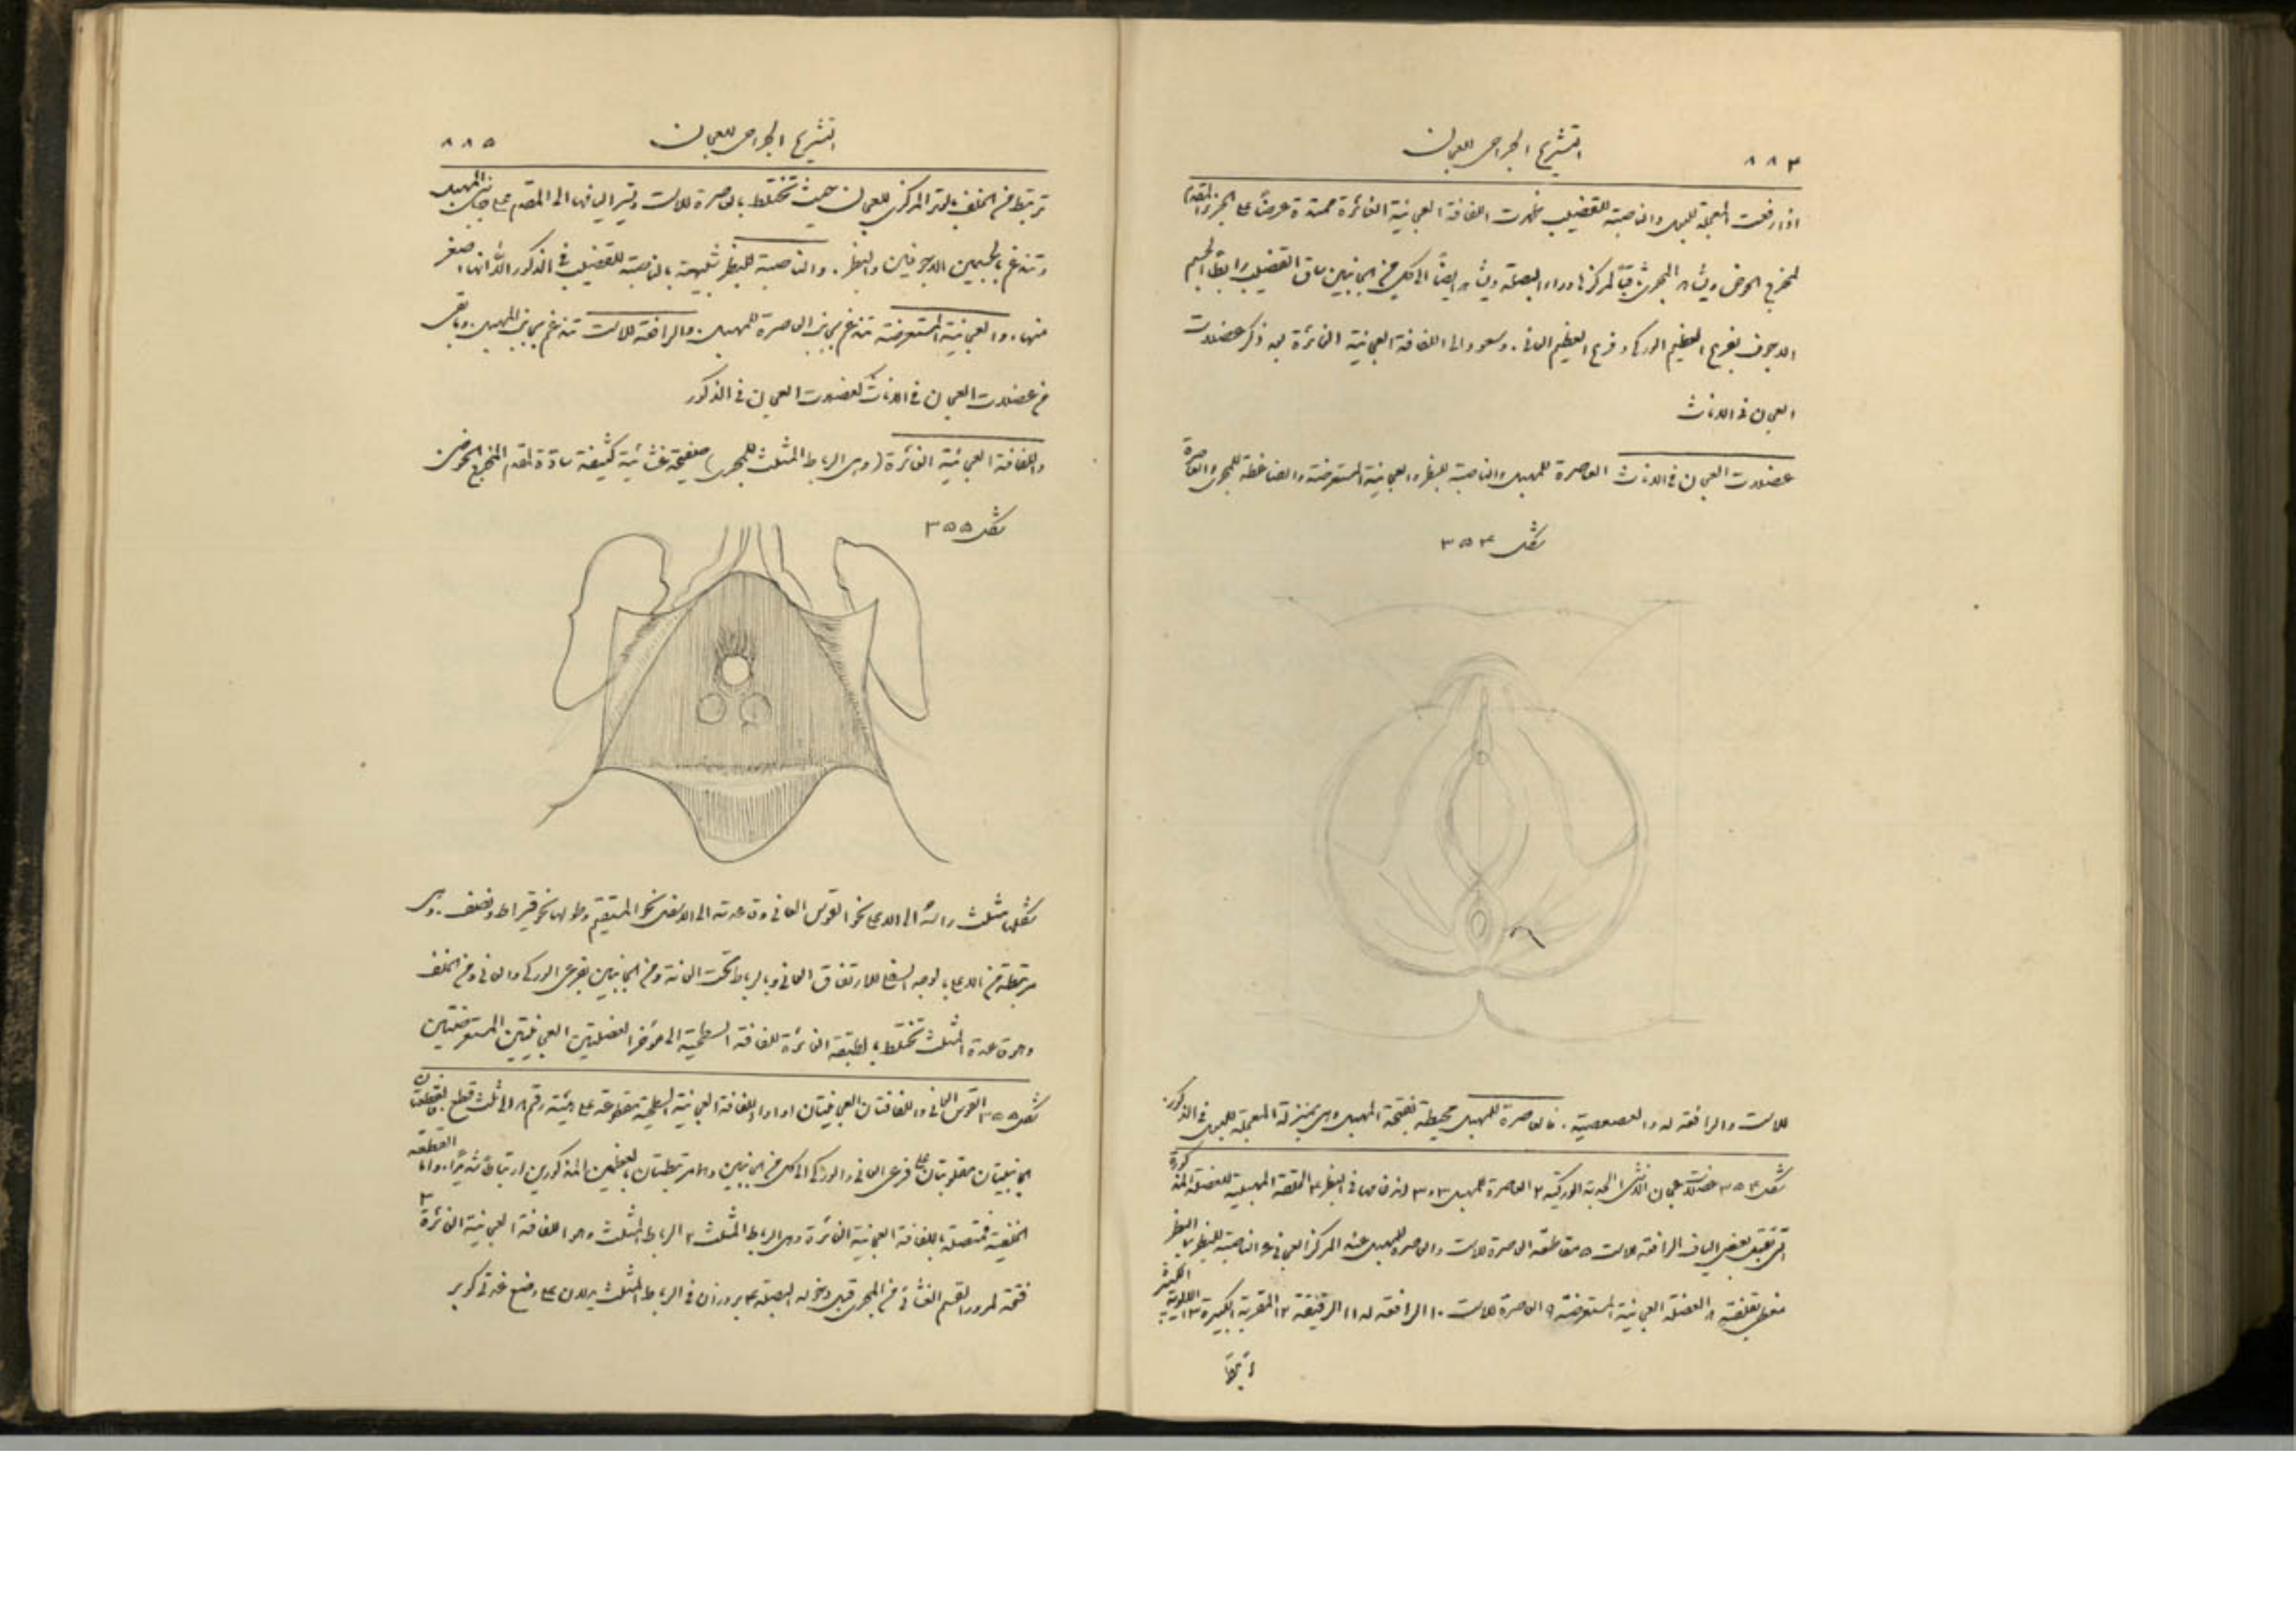 ٨٨٤
التشريح الجراحي للعجان
اذا رفعت المعجلة للبول والناصبة للقضيب ظهرت اللفافة العجانية الغائرة ممتدة عرضًا على الجزء المقدم
لمخرج الحوض ويشاهد المجرى ثاقبًا لمركزها وراء البصلة ويشاهد ايضًا الى كل من الجانبين ساق القضيب رابطة الجسم
الاجوف بفرع العظم الوركي وفرع العظم العاني. وسنعود الى اللفافة العجانية الغائرة بعد ذكر عضلات
العجان في الاناث
عضلات العجان في الاناث العاصرة للمهبل والناصبة للبظر والعجانية المستعرضة والضاغطة للمجرى والعاصرة
شكل ٣٥٤
للاست والرافعة له والعصعصية. فالعاصرة للمهبل محيطة بفتحة المهبل وهي بمنزلة المعجلة للبول في الذكور.
شكل ٣٥٤ عضلات عجان الانثى ١ الحدبة الوركية ٢ العاصرة للمهبل ٣و٣ اندغامها في البظر ٤ الحلقة المهبلية للعضلة المذكورة
التي تقبل بعض الياف الرافعة للاست ٥ مقاطعة العاصرة للاست والعاصرة للمهبل عند المركز العجاني ٦ الناصبة للبظر ٧ البظر
مغطى بقلفته ٨ العضلة العجانية المستعرضة ٩ العاصرة للاست ١٠ الرافعة له ١١ الرقيقة ١٢ المقربة الكبيرة ١٣ الالوية الكبيرة
٨٨٥
التشريح الجراحي للعجان
ترتبط من الخلف بالوتر المركزي للعجان حيث تختلط بالعاصرة للاست وتسير اليافها الى المقدم على جانبي المهبل
وتندغم بالجسمين الاجوفين والبظر. والناصبة للبظر شبيهة بالناصبة للقضيب في الذكور الا انها اصغر
منها. والعجانية المستعرضة تندغم بجانب العاصرة للمهبل. والرافعة للاست تندغم بجانب المهبل. وباقي
من عضلات العجان في الاناث كعضلات العجان في الذكور
واللفافة العجانية الغائرة (وهي الرباط المثلث للمجرى) صفيحة غشائية كثيفة سادة لمقدم المخرج الحوضي
شكل ٣٥٥
شكلها مثلث راسه الى الاعلى نحو القوس العاني وقاعدته الى الاسفل نحو المستقيم وطولها نحو قيراط ونصف. وهي
مرتبطة من الاعلى بالوجه السفلي للارتفاق العاني وبالرباط تحت العانة ومن الجانبين بفرعي الوركي والعاني ومن الخلف
وهو قاعدة المثلث تختلط بالطبقة الغائرة للفافة السطحية الى مؤخر العضلتين العجانيتين المستعرضتين
شكل ٣٥٥ ١ القوس العاني واللفافتان العجانيتان اولا اللفافة العجانية السطحية مقطوعة على هيئة رقم ٨ الى ثلث قطع فالقطعتان
الجانبيتان مقلوبتان على فرعي العاني والوركي الى كل من الجانبين وهما مرتبطتان بالعظمين المذكورين ارتباطًا شديدًا. واما القطعة
الخلفية فمتصلة باللفافة العجانية الغائرة وهي الرباط المثلث ٢ الرباط المثلث وهو اللفافة العجانية الغائرة ٣
فتحة لمرور القسم الغشائي من المجرى قبل دخوله البصلة ٤ بروزان في الرباط المثلث يدلان على وضع غدتي كوبر